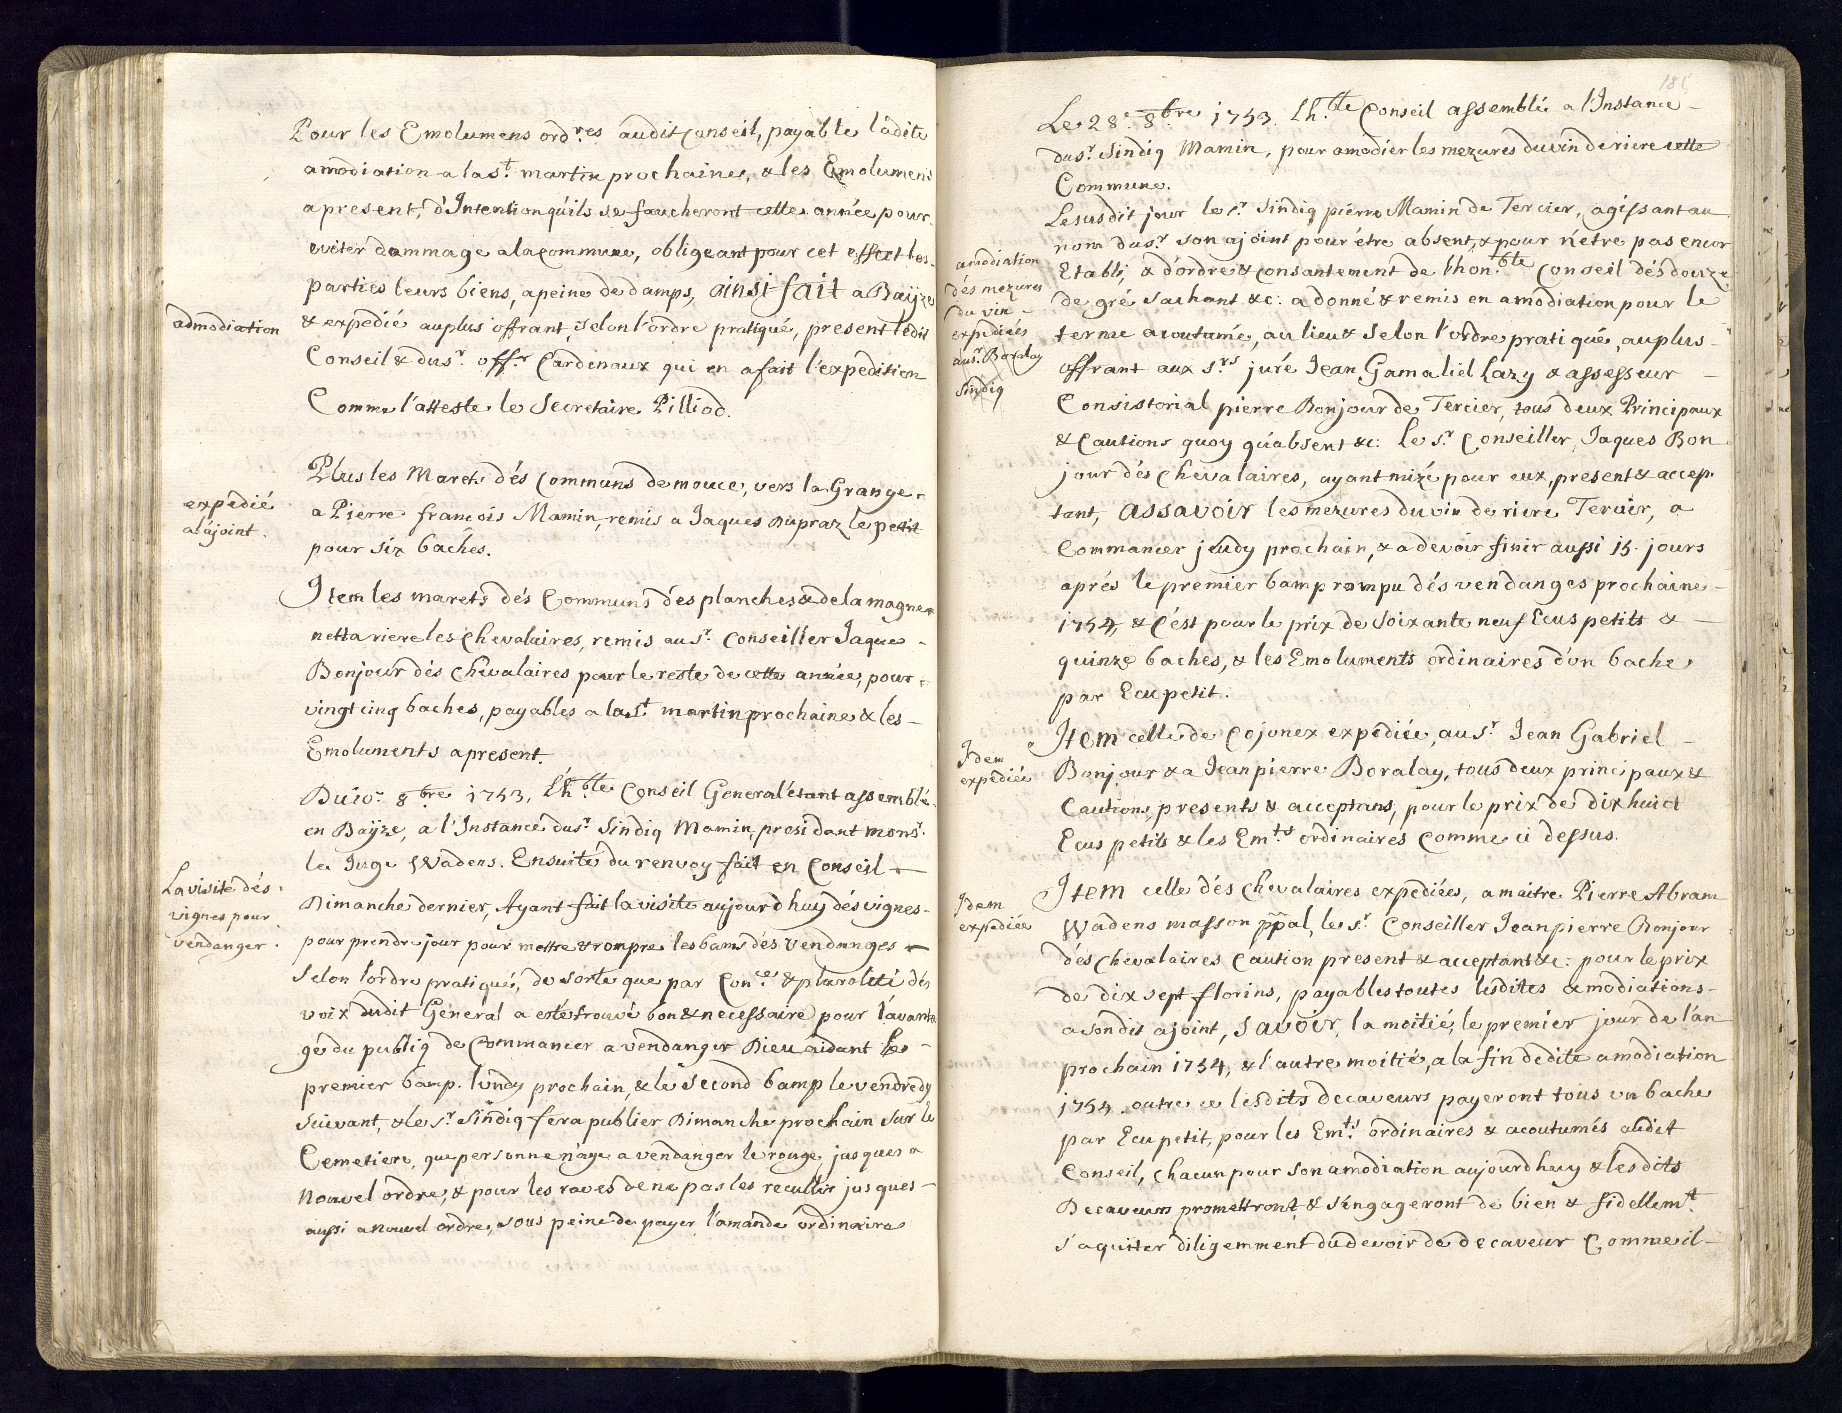 Pour les Emolumens ord.res audit Conseil, payable ladite
amodiation a la st. martin prochaine, & les Emolumens
a present, d'Intention qu'ils se faucheront cette année pour
eviter dommage a la commune, obligeant pour cet effect les
parties leurs biens, a peine de damps, ainsi fait a Baÿze
admodiation
& expedié au plus offrant, selon l'ordre pratiqué, present ledit
Conseil & du sr. offr. Cardinaux qui en a fait l'expedition
Comme l'atteste le Secretaire Pilliod.
Plus les Marets dés Communs de mouce, vers la Grange
expedié
al'ajoint.
a Pierre françois Mamin, remis a Jaques Dupraz le petit
pour six baches.
Item les marets dés Communs dés planches & de la magne
netta riere les Chevalaires, remis au sr. Conseillier Jaque
Bonjour dés Chevalaires pour le reste de cette année, pour
vingt cinq baches, payables a la st. martin prochaine & les
Emoluments a present.
Du 10e. 8bre 1753, l'h.ble Conseil General étant assemblé
en Baÿze, a l'Instance du sr. Sindiq Mamin, presidant monsr.
le Juge Wadens. Ensuite du renvoy fait en Conseil
La visite dés
vignes pour
vendanger.
Dimanche dernier, Ayant fait la visite aujourd'huy dés vignes
pour prendre jour pour mettre & rompre les bams dés Vendanges
Selon l'ordre pratiqué, de sorte que par & pluralité dés
voix dudit General a esté trouvé bon & necessaire pour l'avanta
ge du publiq de Commancer a vendanger Dieu aidant le
premier bamp. lundy prochain, & le Second bamp le vendredy
Suivant, & le sr. Sindiq fera publier Dimanche prochain sur le
Cemetiere, que personne n'aye a vendanger le rouge, jusques a
Nouvel ordre, & pour les raves de ne pas les recullir jusques
aussi a nouvel ordre, sous peine de payer l'amande ordinaire
Le 28e. 8bre 1753. l'h.ble Conseil assemblé a l'Instance
du sr. Sindiq Mamin, pour amodier les mezures du vin de riere cette
Commune.
Le susdit jour le sr. Sindiq pierre Mamin de Tercier, agissant au
nom du sr. son ajoint pour étre absent, & pour n'étre pas encor
amodiation
dés mezures
du vin
expediées
au sr. Boralay
Sindiq
Etabli, & d'ordre & consantement de l'hon.ble Conseil dés douze
de gré sachant &c: a donné & remis en amodiation pour le
terme acoutumé, au lieu & selon l'ordre pratiqué, au plus
offrant aux srs. juré Jean Gamaliel Lazy & assesseur
Consistorial pierre Bonjour de Tercier, tous deux Principaux
& Cautions quoy qu'absent &c: le sr. Conseiller, Jaques Bon
jour dés Chevalaires, ayant mizé pour eux, present & accep
tant, assavoir les mezures du vin de riere Tercier, a
Commancer jeudy prochain, & a devoir finir aussi 15. jours
aprés le premier bamp rompu dés vendanges prochaine
1754, & c'ést pour le prix de Soixante neuf Ecus petits &
quinze baches, & les Emoluments ordinaires d'un bache
par Ecu petit.
Idem
expediée
Item celle de Cojonex expediée, au sr. Jean Gabriel
Bonjour & a Jean pierre Boralay, tous deux principaux &
Cautions, presents & acceptans, pour le prix de dix huict
Ecus petits & les Em.ts ordinaires Comme ci dessus.
Idem
expediée
Item celle dés Chevalaires expediées, a maitre Pierre Abram
Wadens masson ppal, le sr. Conseiller Jean pierre Bonjour
dés Chevalaires Caution present & acceptant &c: pour le prix
de dix sept florins, payables toutes lesdites amodiations
a son dit ajoint, savoir, la moitié, le premier jour de l'an
prochain 1754, & l'autre moitié, a la fin de dite amodiation
1754. outre ce lesdits decaveurs payeront tous un bache
par Ecu petit, pour les Em.ts ordinaires & acoutumés audit
Conseil, Chacun pour son amodiation aujourd'huy & lesdits
Decaveurs promettront & s'éngageront de bien & fidellem.t
s'aquitter diligemment du devoir de decaveur Comme il